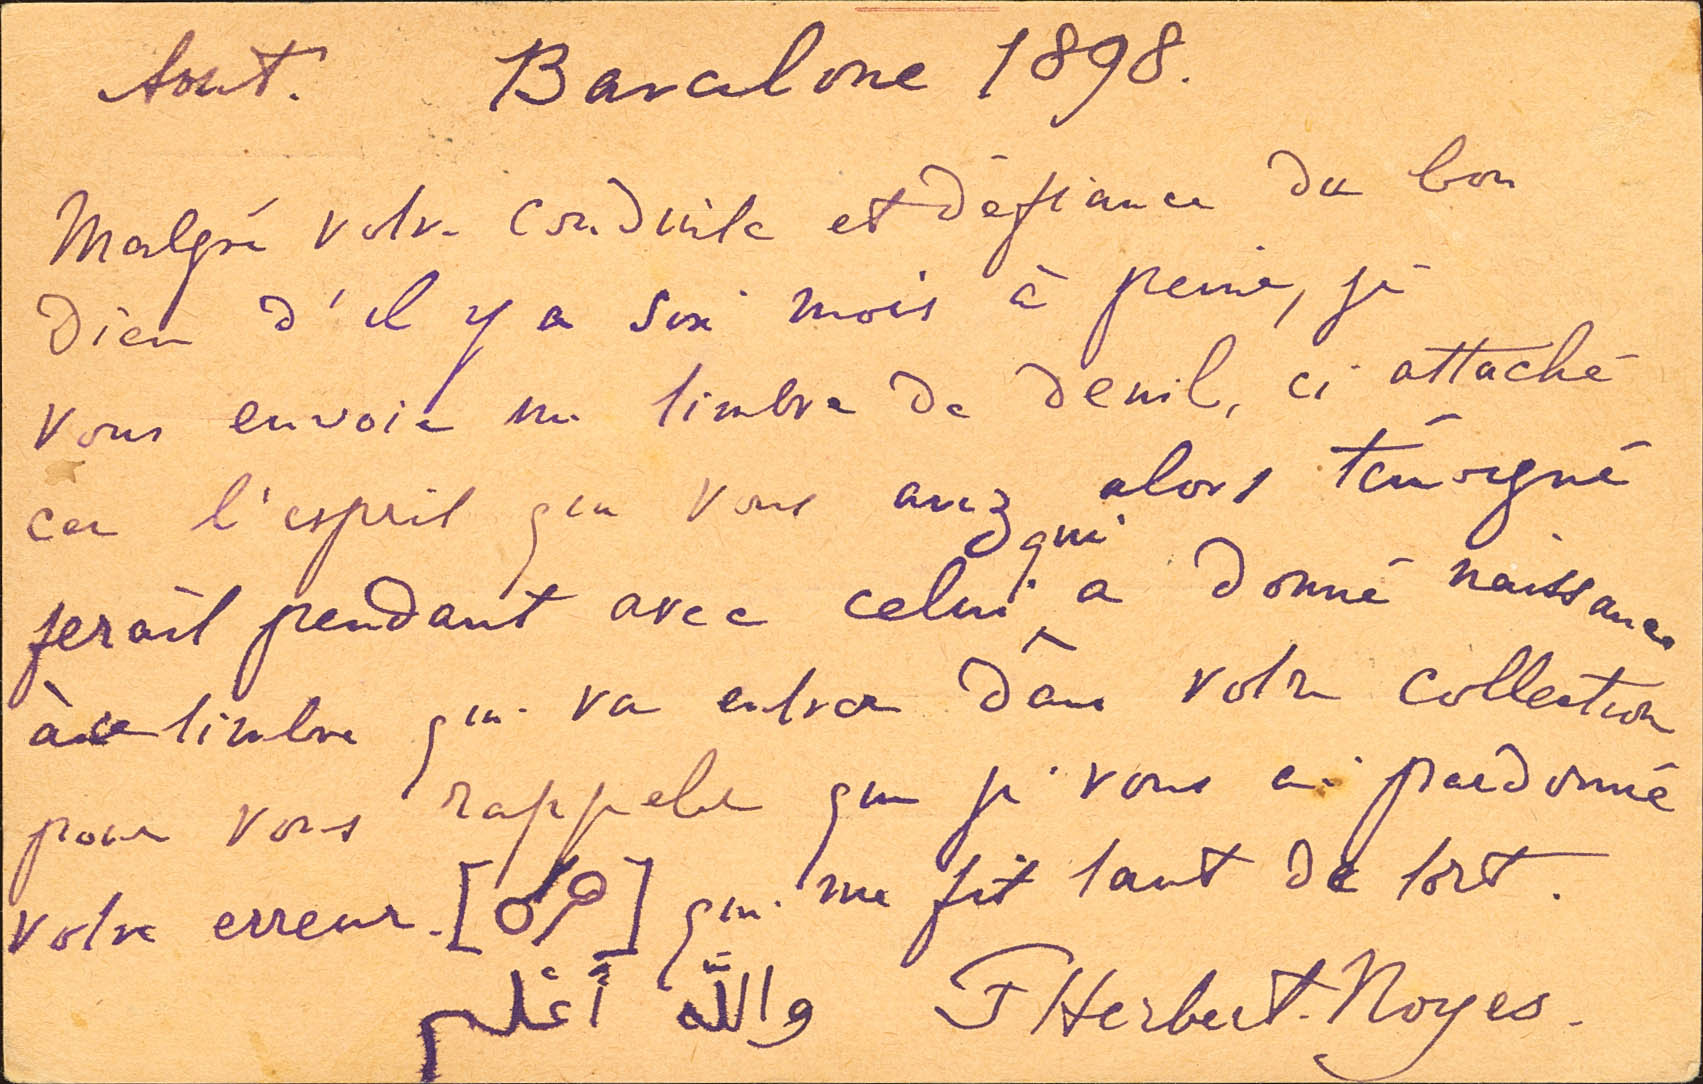 Aout. Barcelone 1898.
Malgré votre conduite et défiance du bon
Dieu d'il y a six mois à peine, je
vous envoie un timbre de deuil, ci attaché
car l'esprit que vous avez alors témoigné
serait pendant avec celui qui a donné naissance
à ce timbre qui va entrer dans votre collection
pour vous rappeler que je vous ai pardonné
votre erreur. [ ] qui me fit tant de tort.
والله أعلم F Herbert-Noyes.